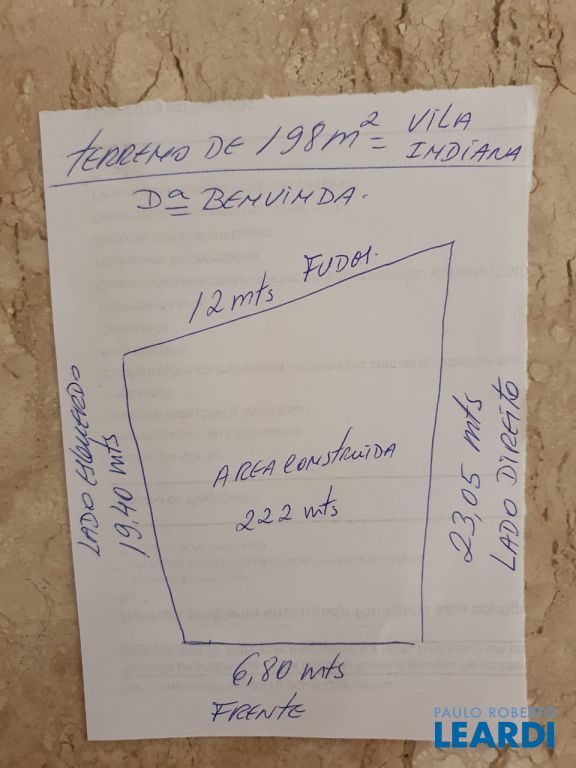 TERRENO DE 198m² = VILA
INDIANA
Dª BENVINDA.
12 mts FUDOS.
LADO ESQUERDO
19.40 mts
AREA CONSTRUIDA
222 mts
23,05 mts
LADO DIREITO
6,80 mts
FRENTE
PAULO ROBERTO
LEARDI